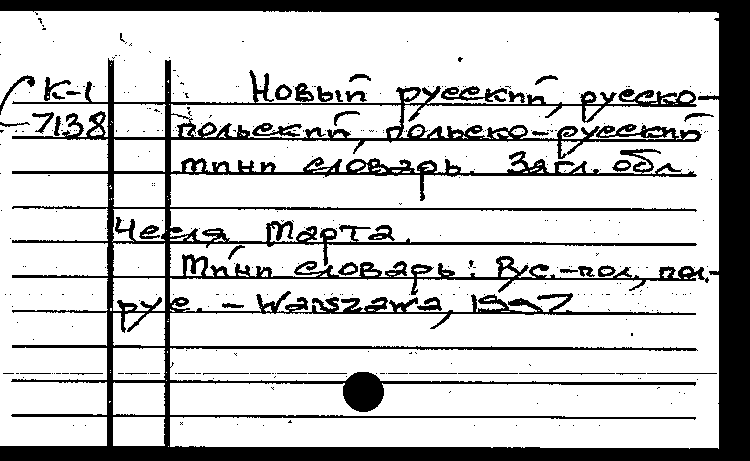 К-1 Новый русский, русско-
7138 польский, польско-русский
мини словарь. Загл. обл.
Чесля Марта.
Мини словарь: Рус.-пол., пол.-
рус. - Warszawa, 1997